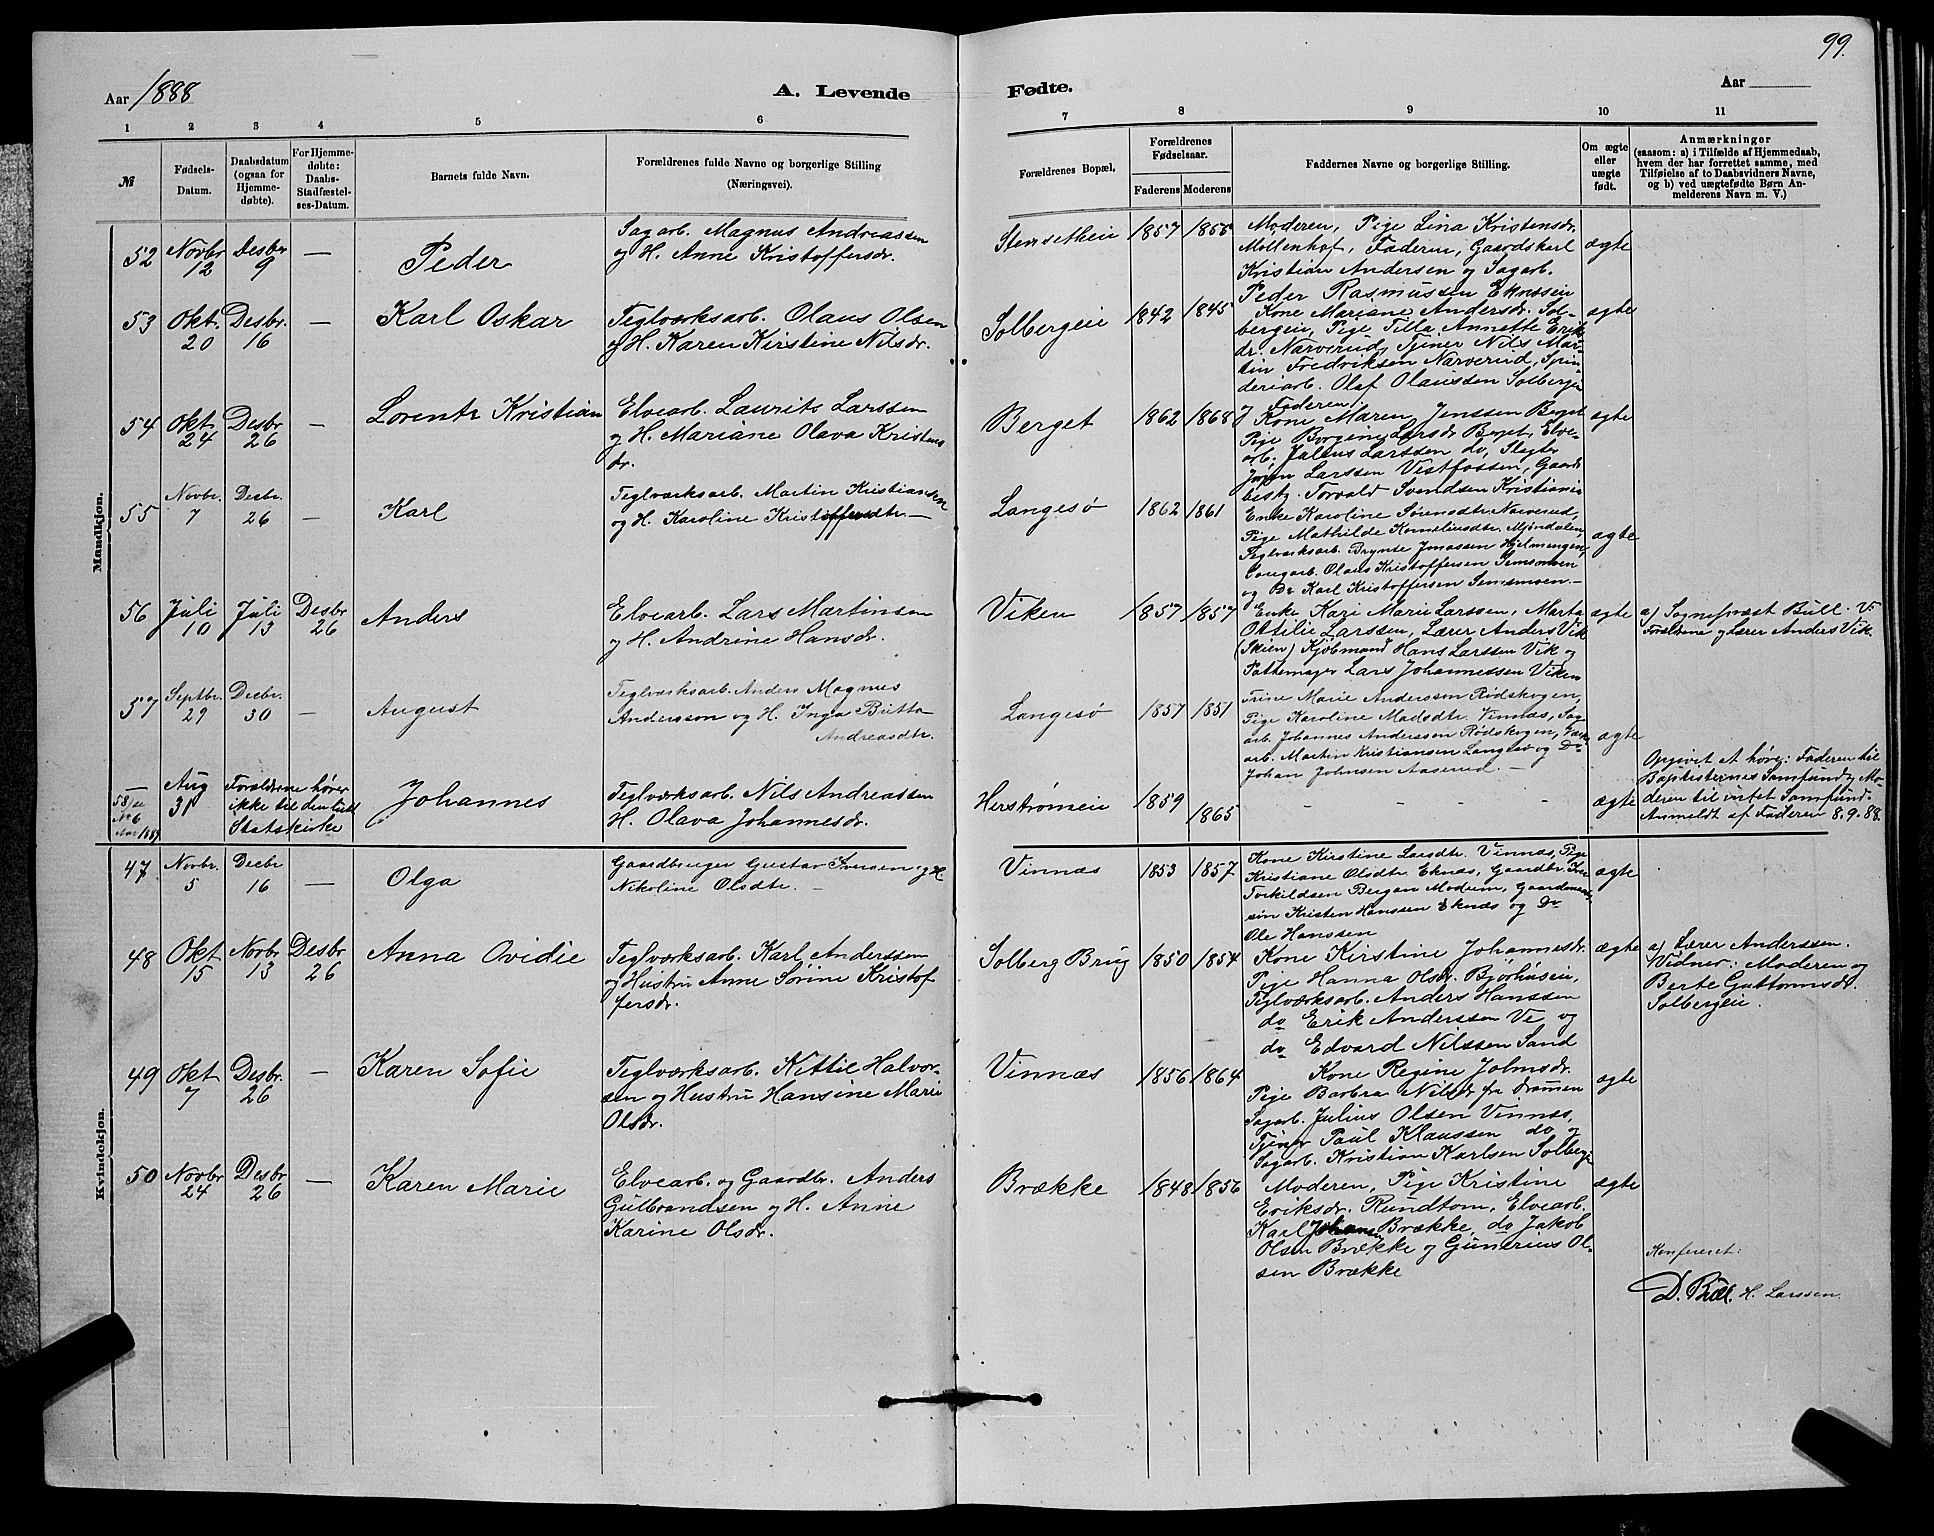 99.
Aar 1888
A. Levende
Fødte.
Aar
1 2 3 4 5 6
7 8 9 10 11
№
Fødsels-Datum.
Daabsdatum (ogsaa for Hjemmedøbte).
For Hjemmedøbte: Daabs-Stadfæstelses-Datum.
Barnets fulde Navn.
Forældrenes fulde Navne og borgerlige Stilling (Næringsvei).
Forældrenes Bopæl.
Forældrenes Fødselsaar.
Faderens Moderens
Faddernes Navne og borgerlige Stilling.
Om ægte eller uægte født.
Anmærkninger
(saasom: a) i Tilfælde af Hjemmedaab, hvem der har forrettet samme, med Tilføielse af to Daabsvidners Navne, og b) ved uægtefødte Børn Anmelderens Navn m. V.)
Mandkjøn.
52 Novbr 12 Desbr 9 — Peder
Sagarb. Magnus Andreassen
og H. Anne Kristoffersdr.
Stensetheie 1857 1855
Moderen, Pige Lina Kristensdr.
Mollenhof, Faderen, Gaardskarl
Kristian Andersen og Sagarb.
Peder Rasmussen Eknæseie
ægte
53 Okt. 20 Desbr. 16 — Karl Oskar
Teglværksarb. Olaus Olsen
og H. Karen Kirstine Nilsdr.
Solbergeie 1842 1845
Kone Mariane Andersdr. Sol-
bergeie, Pige Tilla Annette Erik
dr. Narverud, Tjener Nils Mar-
tin Fredriksen Narverud, Spin-
deriarb. Olaf Olaussen Solbergeie
og Faderen
ægte
54 Okt. 24 Desbr 26 — Lorentz Kristian
Elvearb. Laurits Larssen
og H. Mariane Olava Kristens
dr.
Berget 1862 1868
Kone Maren Jenssen Berget
Pige Borgine Larsdr Berget, Elve-
arb. Julius Larssen do, Slagter
Jørgen Larssen Vestfossen, Gaard
besty. Torvald Svendsen Kristiania
ægte
55 Novbr. 7 Desbr. 26 — Karl
Teglværksarb. Martin Kristiansen
og H. Karoline Kristoffersdtr. —
Langesø 1862 1861
Enke Karoline Sørensdtr. Narverud,
Pige Mathilde Korneliusdtr. Mjøndalen,
Teglværksarb. Brynte Jonassen Hjelmengen,
Olaus Kristoffersen Semsmoen
og Do Karl Kristoffersen Semsmoen. —
ægte
56 Juli 10 Juli 13 Desbr 26 Anders
Elvearb. Lars Martinsen
og H. Andrine Hansdr.
Viken 1857 1857
Enke Kari Marie Larssen, Marta
Ottilie Larssen, Lærer Anders Vik
(Skien) Kjøbmand Hans Larssen Vik og
Pottemager Lars Johannessen Viken
ægte
a) Sogneprest Bull. Vi
Forældrene og Lærer Anders Vik.
57 Septbr. 29 Decbr. 30 — August
Teglværksarb. Anders Magnus
Andersson og H. Inga Britta
Andreasdtr.
Langesø 1857 1851
Trine Marie Anderssen Rødskogen,
Pige Karoline Madsdtr. Vinnæs, Sag
arb. Johannes Anderssen Rødskogen, Værk
arb. Martin Kristiansen Langesø og Do
Johan Johnsen Aaserud. —
ægte
— 58/se No 6 Aar 1889
Aug 31 Forældrene hører
ikke til den luth
Statskirke
Johannes
Teglværksarb. Nils Andreassen
H. Olava Johannesdr.
Herstrømeie 1859 1865
- - - -
ægte
Opgivet at høre: Faderen til
Baptisternes Samfund og Mo-
deren til intet Samfund.
Anmeldt af Faderen 8.9.88.
Kvindekjøn.
47 Novbr. 5 Decbr 16 — Olga
Gaardbruger Gustav Iversen og H.
Nikoline Olsdtr. —
Vinnæs 1853 1857
Kone Kirstine Larsdtr. Vinnæs, Pige
Kristiane Olsdtr. Eknæs, Gaardbr.
Torkildsen Bergan Modum, Gaardmands-
søn Kristen Hanssen Eknæs og Do
Ole Hanssen
ægte
48 Okt 15 Novbr 13 Desbr 26 Anna Ovidie
Teglværksarb. Karl Anderssen
og Hustru Anne Sørine Kristof
fersdr.
Solberg Brug 1850 1854
Kone Kirstine Johannesdr.
Pige Hanna Olsdr. Bjørhuseie,
Teglværksarb. Anders Hanssen
do Erik Anderssen Ve og
do Edvard Nilssen Sand
ægte
a) Lærer Anderssen.
Vidner: Moderen og
Berte Guttormsdr.
Solbergeie.
49 Okt 7 Desbr. 26 — Karen Sofie
Teglværksarb. Kittil Halvor-
sen og Hustru Hansine Marie
Olsdr.
Vinnæs 1856 1864
Kone Regine Johnsdr.
Pige Barbra Nilsdr fra Dramen
Sagarb. Julius Olsen Vinnæs,
Tjener Paul Klaussen do og
Sagarb. Kristian Karlsen Solberg
ægte
50 Novbr 24 Desbr 26 — Karen Marie
Elvearb. og Gaardbr. Anders
Gulbrandsen og H. Anne
Karine Olsdr.
Brække 1848 1856
Moderen, Pige Kristine
Eriksdr. Rundtom, Elvearb.
Karl Johansen Brække, do Jakob
Olsen Brække og Gunerius Ol-
sen Brække
ægte
Konfereret:
D. Bull. H. Larssen.